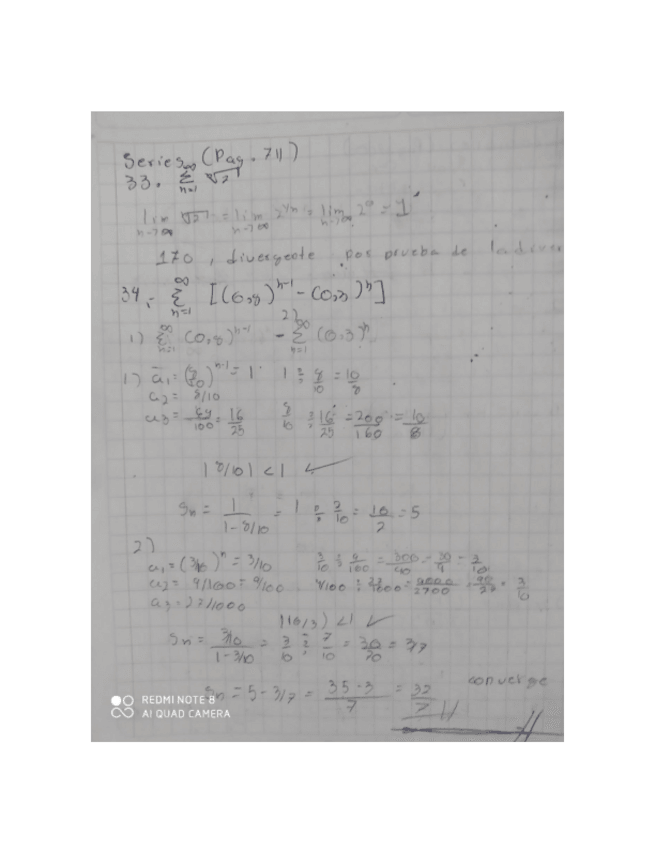 Series (Pag. 711)
33. ∞ Σ n=1 ⁿ√2
lim n→∞ ⁿ√2 = lim n→∞ 2^1/n = lim n→∞ 2^0 = 1
1≠0, divergente por prueba de la diver
34. ∞ Σ n=1 [(0,8)^n-1 - (0,3)^n]
1) ∞ Σ n=1 (0,8)^n-1 2) - ∞ Σ n=1 (0,3)^n
1) a1 = (8/10)^n-1 = 1 1 ÷ 8/10 = 10/8
a2 = 8/10
a3 = 64/100 = 16/25 8/10 ÷ 16/25 = 200/160 = 10/8
|8/10| < 1 ✓
Sn = 1/(1-8/10) = 1 ÷ 2/10 = 10/2 = 5
2)
a1 = (3/10)^n = 3/10
a2 = 9/100 = 9/100
a3 = 27/1000
<1 ✓
Sn = 3/10/(1-3/10) = 3/10 ÷ 7/10 = 30/70 = 3/7
Sn = 5-3/7 = 35-3/7 = 32/7 converge
REDMI NOTE 8
AI QUAD CAMERA